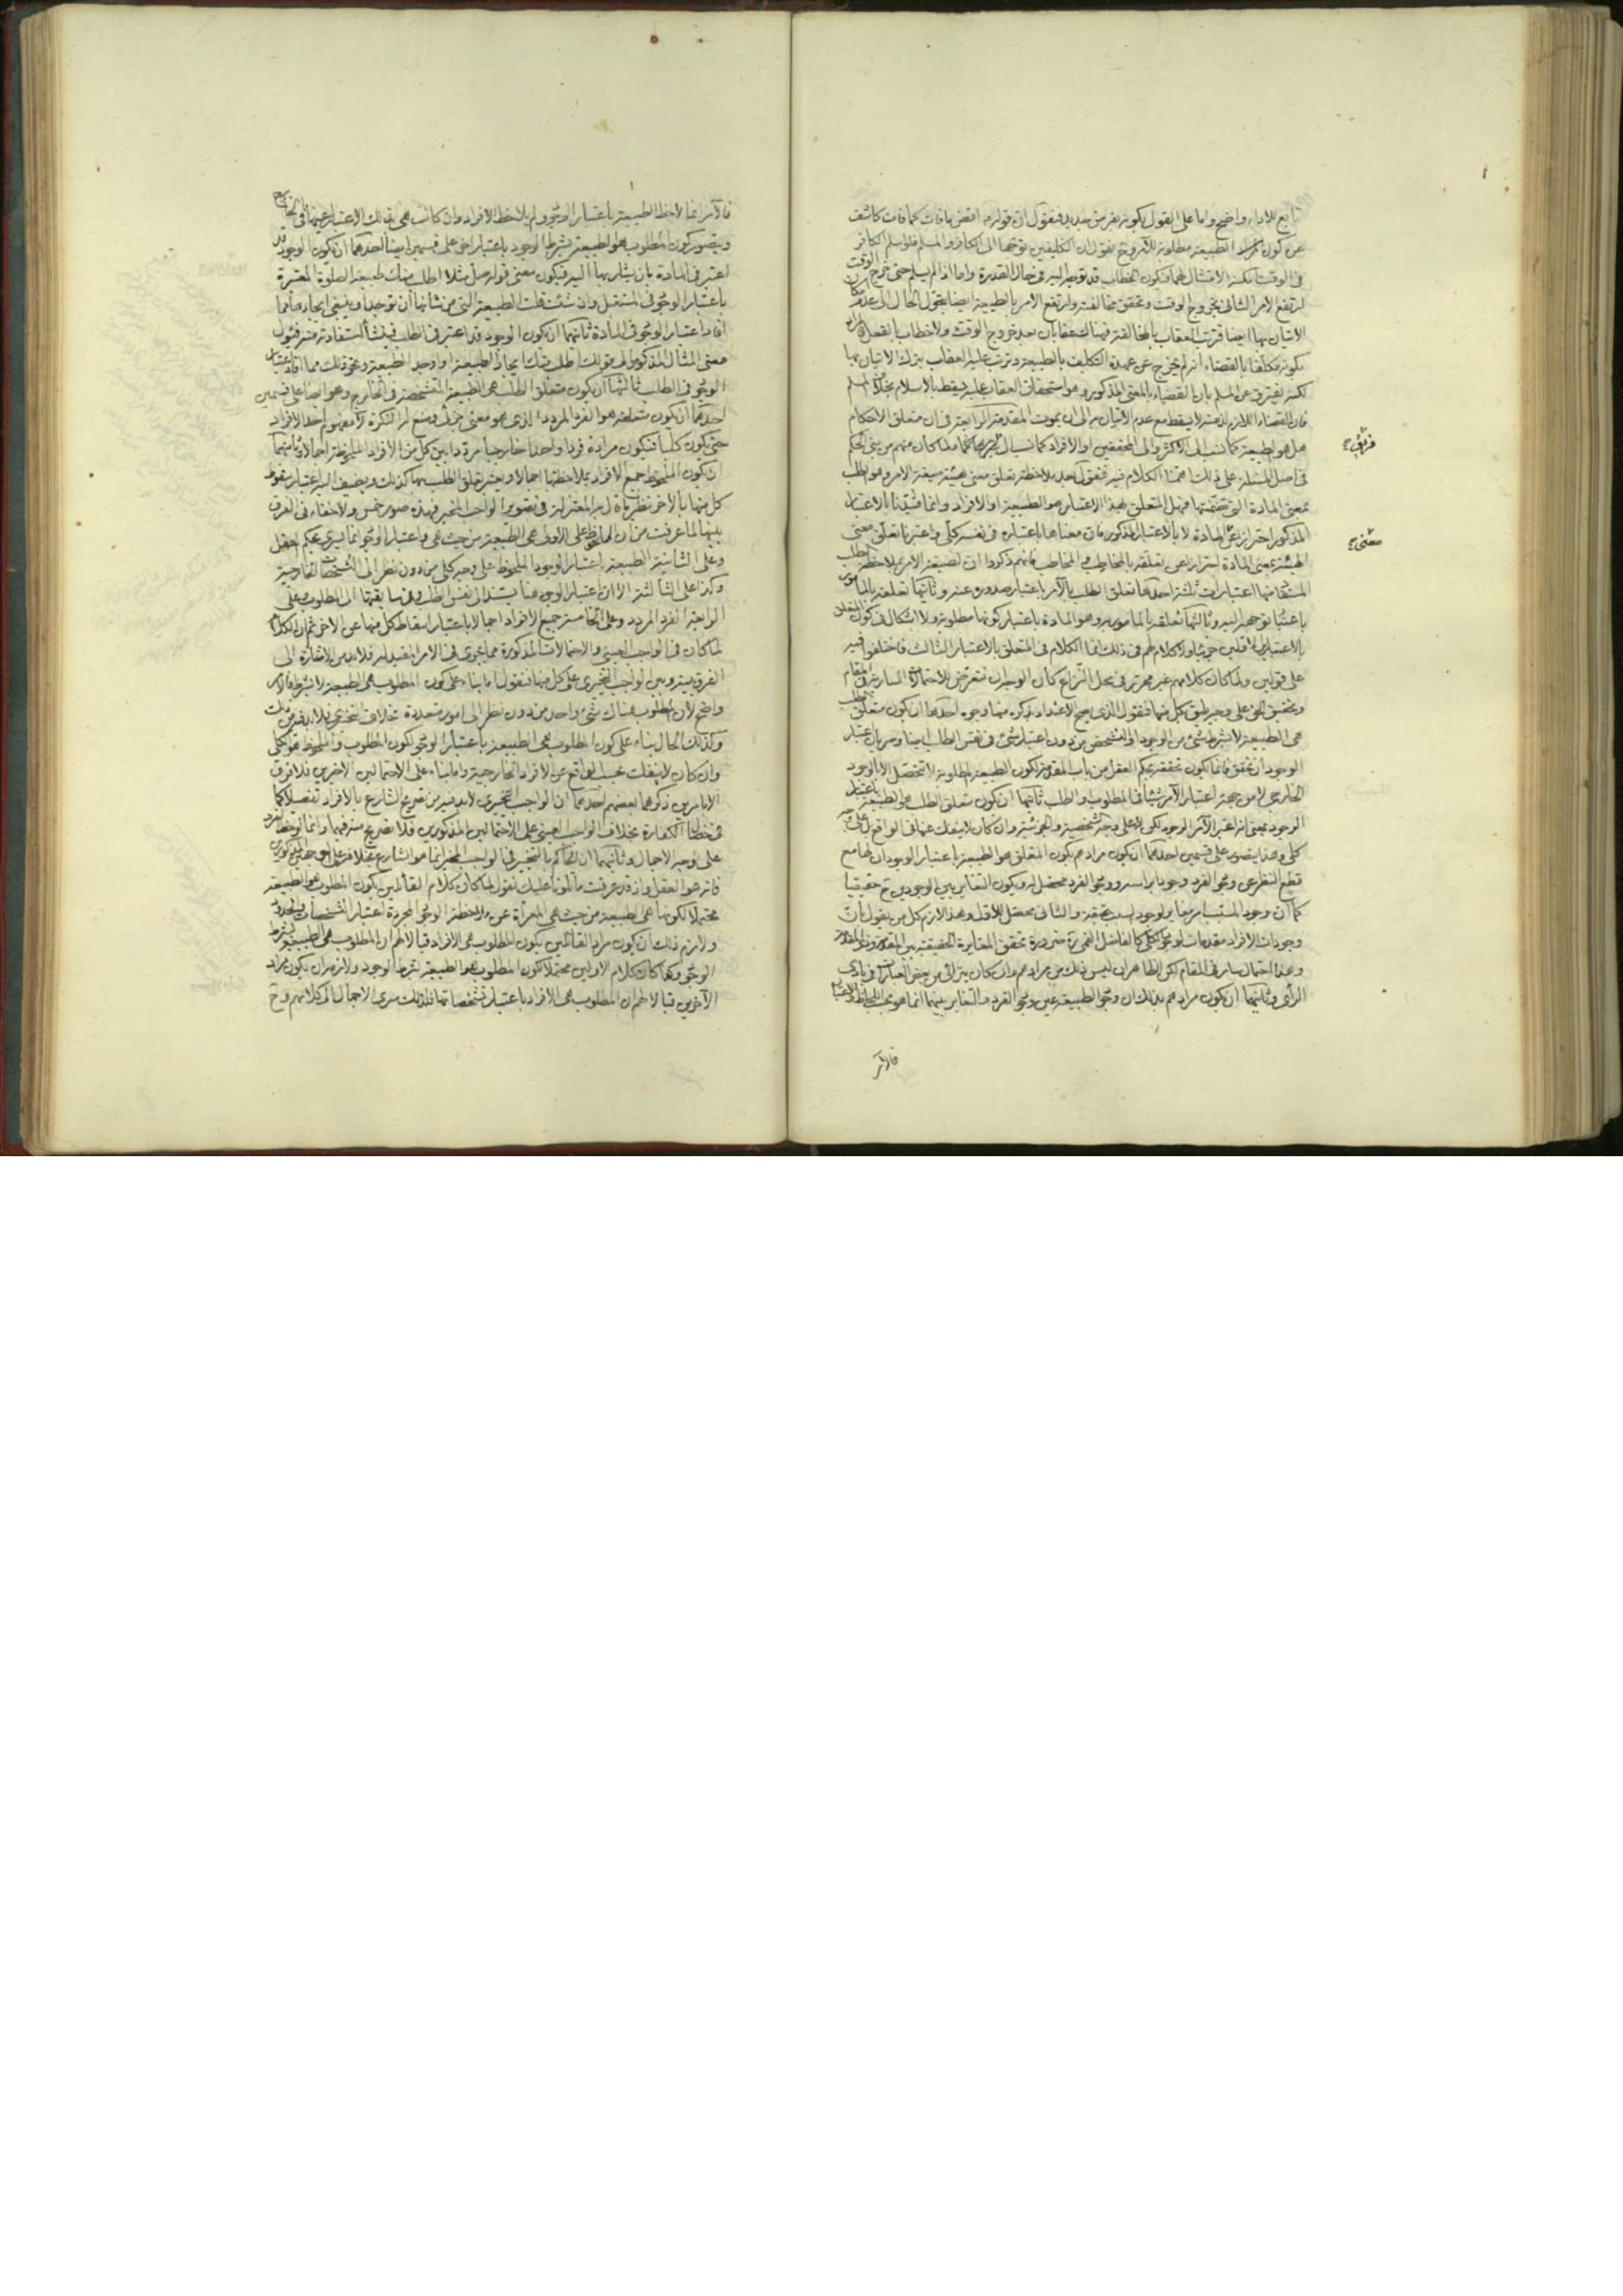 تابع للاداء واضح واما على القول بكونه بفرض جديد فنقول ان قوله اقض ما فات كما فات كاشف
عن كون الطبيعة مطلوبة للآمر وح نقول ان التكليفين توجها الى الكافر والمسلم فلو اسلم الكافر
في الوقت الامتثال لهما فيكون الخطاب قد توجه اليه في حال القدرة واما اذا لم يسلم حتى خرج الوقت
ارتفع الامر الثاني بخروج الوقت وتحقق مخالفته وارتفع الامر بالطبيعة ايضا الى عدم امكان
الاتيان بها ايضا فترتب العقاب بالمخالفة فهناك عقابان بعد خروج الوقت ولا خطاب بالفعل
كونه مكلفا بالقضاء انه لم يخرج عن عهدة التكليف بالطبيعة وترتب عليه العقاب بترك الاتيان بها
لكنه يفترق عن المسلم بان القضاء بالمعنى المذكور وهو استحقاق العقاب عليه يسقط بالاسلام بخلاف المسلم
فان القضاء اللازم لا يسقط مع عدم الاتيان به الى ان يموت المقدمة الرابعة في ان متعلق الاحكام
هل هو الطبيعة كما نسب الى الاكثر والى المحققين او الافراد كما نسب الى كان منهم من بنى الحكم
في اصل المسئلة على ذلك الكلام فيه فنقول بعد ملاحظة تعلق معنى هيئة صيغة الامر وهو الطلب
بمعنى المادة التي فهل المتعلق بهذا الاعتبار هو الطبيعة او الافراد وانما قيدنا بالاعتبار
المذكور احترازا عن المادة لا بالاعتبار المذكور فان معناها باعتباره في نفسه كلي واعتبرنا تعلق معنى
الهيئة بمعنى المادة احترازا عن تعلقه بالمخاطب والمخاطب فانهم ذكروا ان لصيغة الامر بملاحظة الطلب
المستفاد منها اعتبارات ثلثة احدها تعلق الطلب بالآمر باعتبار صدوره عنه وثانيها تعلقه بالمامور
باعتبار توجهه اليه وثالثها تعلقه بالمامور به وهو المادة باعتبار كونها مطلوبة ولا اشكال في كون المتعلق
بالاعتبارين الاولين جزئيا ولا كلام لهم في ذلك انما الكلام في المتعلق بالاعتبار الثالث فاختلفوا فيه
على قولين ولما كان كلامهم غير محرر في محل النزاع كان الواجب ان نتعرض للاحتمالات السارية في المقام
وتحقيق الحق على وجه يليق بكل منها فنقول الذي يصح الاعتداد بذكره منها وجوه احدها ان يكون متعلق الطلب
هي الطبيعة لا بشرط شئ من الوجود او التشخص من دون اعتبار شئ في نفس الطلب ايضا وسريان اعتبار
الوجود ان تحقق فانما يكون تحققه بحكم العقل من باب المقدمة لكون الطبيعة المطلوبة لا تتحصل الا بالوجود
الخارجي لا من جهة اعتبار الآمر شيئا في المطلوب والطلب ثانيها ان يكون متعلق الطلب هو الطبيعة باعتبار
الوجود بمعنى انه اعتبر الآمر الوجود لكن لا على وجه الشخصية والجزئية وان كان لا ينفك عنها في الواقع بل على وجه
كلي وهذا يتصور على قسمين احدهما ان يكون مرادهم بكون المتعلق هو الطبيعة باعتبار الوجود ان لها مع
قطع النظر عن وجود الفرد وجودا براسه ووجود الفرد محصل له ويكون التغاير بين الوجودين ح حقيقيا
كما ان وجود السبب مغاير لوجود المسبب حقيقة والثاني محصل للاقل وهذا لازم كل من يقول بان
وجودات الافراد مقدمات لوجود الكلي كالفاضل القمي ره ضرورة تحقق المغايرة الحقيقية بين المقدمة وذي المقدمة
وهذا احتمال سار في المقام لكن الظاهر ان ليس ذلك من مرادهم وان كان يترائى من بعض العبارات في بادى
الرأي وثانيهما ان يكون مرادهم بذلك ان وجود الطبيعة عين وجود الفرد والتغاير بينهما انما هو بحسب اللحاظ والاعتبار
فالآمر
فالآمر انما لاحظ الطبيعة باعتبار الوجود ولم يلاحظ الافراد وان كانت هي بذلك الاعتبار عينها في الخارج
ويتصور كون المطلوب هو الطبيعة بشرط الوجود باعتبار اخر على قسمين ايضا احدهما ان يكون الوجود قد
اعتبر في المادة بان يشار بها اليه فيكون معنى قوله صل مثلا اطلب منك طبيعة الصلوة المعتبرة
باعتبار الوجود في المستقبل وان شئت قلت الطبيعة التي من شانها ان توجد وينبغي ايجادها مما
افاد اعتبار الوجود في المادة ثانيهما ان يكون الوجود قد اعتبر في الطلب
معنى المثال المذكور الى قولك اطلب منك ايجاد الطبيعة او اوجد الطبيعة ونحو ذلك مما افاد اعتبار
الوجود في الطلب ثالثها ان يكون متعلق الطلب هي الطبيعة المتشخصة في الخارج وهو ايضا على قسمين
احدهما ان يكون متعلقه هو الفرد المردد الذي هو معنى جزئي وضع له النكرة لا مفهوم احد الافراد
حتى يكون كليا فيكون مراده فردا واحدا خارجيا مرددا بين كل من الافراد الملحوظة اجمالا وثانيهما
ان يكون الملحوظ جميع الافراد بملاحظتها اجمالا ويعتبر تعلق الطلب بها كذلك ويضيف اليه اعتبار سقوط
كل منها بالاخر نظير ما قاله المعتزلة في تصوير الواجب المخير فهذه صور خمس ولا خفاء في الفرق
بينها لما عرفت من ان الملحوظ على الاولى هي الطبيعة من حيث هي واعتبار الوجود انما يسرى بحكم العقل
وعلى الثانية الطبيعة باعتبار الوجود الملحوظ على وجه كلي من دون نظر الى التشخصات الخارجية
وكذا على الثالثة الا ان اعتبار الوجود هنا يستند الى نفس الطلب وفي سابقتها الى المطلوب وعلى
الرابعة الفرد المردد وعلى الخامسة جميع الافراد اجمالا باعتبار اسقاط كل منها عن الاخر ثم ان الكلام
لما كان في الواجب العيني والاحتمالات المذكورة مما يجري في الامر المفيد له فلا بد من الاشارة الى
الفرق بينه وبين الواجب التخييري على كل منها فنقول اما بناء على كون المطلوب هي الطبيعة لا بشرط فالامر
واضح لان المطلوب هناك شئ واحد من دون نظر الى امور متعددة بخلاف التخييري فلا بد فيه من ذلك
وكذلك الحال بناء على كون المطلوب هي الطبيعة باعتبار الوجود لكون المطلوب والملحوظ هو الكلي
وان كان لا ينفك بحسب الواقع عن الافراد الخارجية واما بناء على الاحتمالين الاخرين فلا فرق
الا بامرين ذكرهما بعضهم احدهما ان الواجب التخييري لا بد فيه من تصريح الشارع بالافراد تفصيلا كما
في خصال الكفارة بخلاف الواجب العيني على الاحتمالين المذكورين فلا تصريح منه فيها وانما لوحظ الفرد
على وجه الاجمال وثانيهما ان الحاكم بالتخيير في الواجب المخير انما هو الشارع بخلافه على المذكورين
فانه هو العقل واذ قد عرفت ما تلونا عليك نقول لما كان كلام القائلين بكون المطلوب هو الطبيعة
محتملا لكونها هي الطبيعة من حيث هي المعراة عن ملاحظة الوجود المجردة اعتبار التشخصات والحدود
ولازم ذلك ان يكون مراد القائلين بكون المطلوب هي الافراد قبالا لهم ان المطلوب هي الطبيعة بشرط
الوجود وكما كان كلام الاولين محتملا لكون المطلوب هو الطبيعة بشرط الوجود ولازمه ان يكون مراد
الآخرين قبالا لهم ان المطلوب هي الافراد باعتبار تشخصاتها فلذلك سرى الاجمال الى كلامهم وح